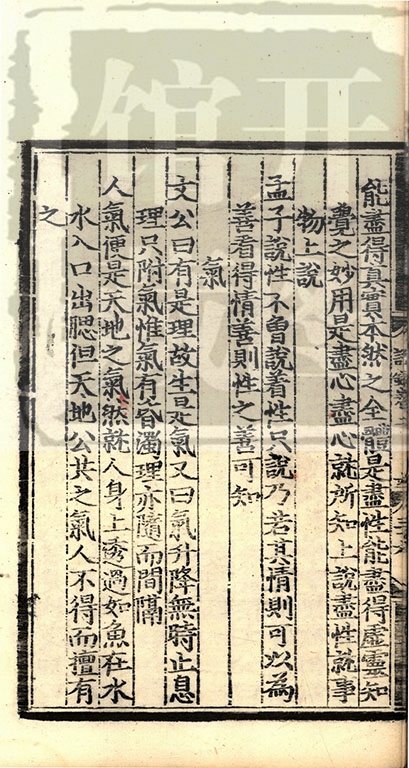 能盡得真實本然之全體是盡性能盡得虛靈知
覺之妙用是盡心盡心就所知上說盡性就事
物上說
孟子說性不曽說着性只說乃若其情則可以為
善看得情善則性之善可知
氣
文公曰有是理故生是氣又曰氣升降無時止息
理只附氣惟氣有昏濁理亦隨而間隔
人氣便是天地之氣然就人身上透過如魚在水
水入口出腮但天地公共之氣人不得而擅有
之